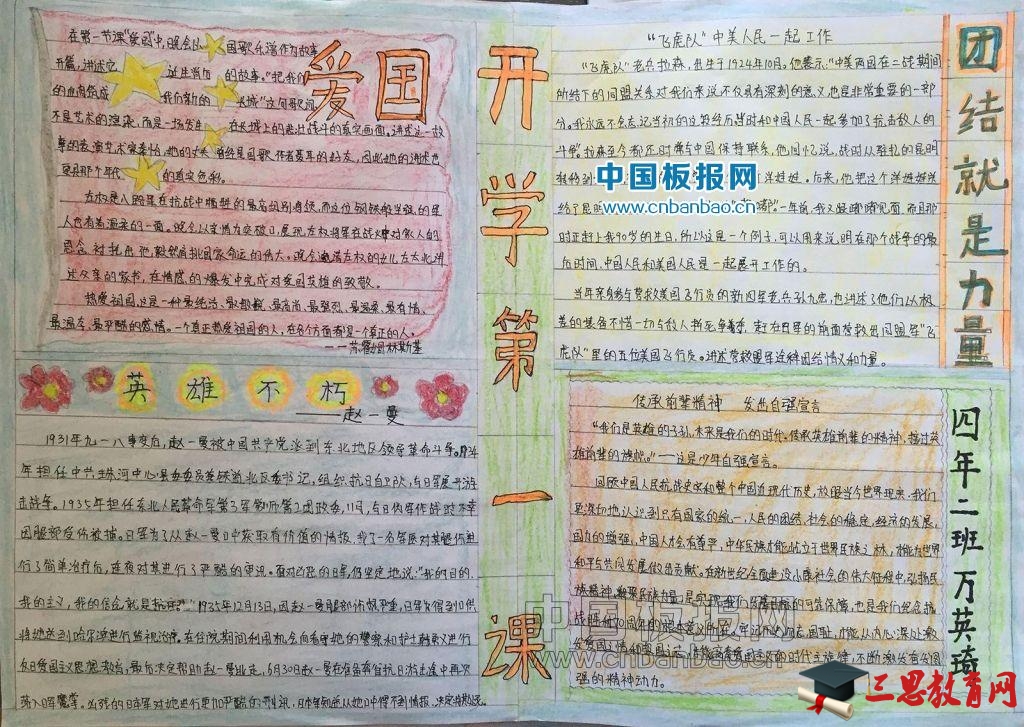 爱国
在第一节课"爱国"中,晚会从 国歌乐谱作为故事
开篇,讲述它 诞生背后 的故事。"把我们
的血肉筑成 我们新的 长城"这句歌词,
不是艺术的渲染,而是一场发生 在长城上的悲壮战斗的真实画面。讲述这一故
事的表演艺术家秦怡,她的丈夫曾经是国歌作者聂耳的好友,因此她的讲述也
更具那个年代 的真实色彩。
左权是八路军在抗战中牺牲的最高级别将领,而这位钢铁般坚强的军
人也有着温柔的一面。晚会以亲情为突破口,展现左权将军在战火中对家人的
思念,衬托出他毅然肩挑国家命运的伟大。晚会邀请左权的女儿左太北讲
述父亲的家书,在情感的爆发中完成对爱国英雄的致敬。
热爱祖国,这是一种最纯洁、最敏锐、最高尚、最强烈、最温柔、最有情、
最温存、最严酷的感情。一个真正热爱祖国的人,在各个方面都是一个真正的人。
——苏霍姆林斯基
英雄不朽
——赵一曼
1931年九一八事变后,赵一曼被中国共产党派到东北地区领导革命斗争。1934
年担任中共珠河中心县委委员兼铁道北区委书记,组织抗日自卫队,与日军展开游
击战争。1935年担任东北人民革命军第3军第1师第2团政委,11月,与日伪军作战时不幸
因腿部受伤被捕。日军为了从赵一曼口中获取有价值的情报,找了一名军医对其腿伤进
行了简单治疗后,连夜对其进行了严酷的审讯。面对凶恶的日军,仍坚定地说:"我的目的,
我的主义,我的信念就是抗日。"1935年12月13日,因赵一曼腿部伤势严重,日军为得到口供
将她送到哈尔滨进行监视治疗。在住院期间利用机会向看守她的警察和护士韩勇义进行
反日爱国主义思想教育,最后决定帮助赵一曼逃走,6月30日赵一曼在准备奔往抗日游击途中再次
落入日军魔掌。凶残的日本军对她进行更加严酷的刑讯,日本军知道从她口中得不到情报,决定
开学第一课
"飞虎队"中美人民一起工作
"飞虎队"老兵拉森,出生于1924年10月。他表示:"中美两国在二战期间
所结下的同盟关系对我们来说不仅具有深刻的意义,也是非常重要的一部
分。我永远不会忘记当初的这段经历,当时和中国人民一起参加了抗击敌人的
斗争。拉森至今都还时常与中国保持联系,他回忆说,战时从驻扎的昆明
转移到 洋娃娃。后来,他把这个洋娃娃送
给了昆明 "嘟嘟"。一年前,我又跟嘟嘟见面,而且那
时正赶上我90岁的生日,所以这是一个例子,可以用来说明在那个战争的最
后时间,中国人民和美国人民是一起展开工作的。
当年亲身参与营救美国飞行员的新四军老兵孙九宏,也讲述了他们以极
差的装备不惜一切与敌人拼死争夺,赶在日军的前面营救出同盟军"飞
虎队"里的五位美国飞行员。讲述营救盟军这种团结情义和力量。
团结就是力量
传承前辈精神 发出自强宣言
"我们是英雄的子孙,未来是我们的时代。传承英雄前辈的精神,接过英
雄前辈的旗帜。"——这是少年自强宣言。
回顾中国人民抗战史实和整个中国近现代历史,放眼当今世界现实,我们
更深切地认识到只有国家的统一,人民的团结,社会的稳定,经济的发展,
国力的增强,中国人才会有尊严,中华民族才能站立于世界民族之林,才能为世界
和平与共同发展做出贡献。在新世纪全面建设小康社会的伟大征程中,弘扬民
族精神,凝聚民族力量,是实现我们发展目标的可靠保障,也是我们纪念抗
战胜利70周年的根本意义所在。牢记历史国耻,才能从内心深处激
发爱国之情和爱国 时代主旋律,不断激发奋发图
强的精神动力。
四年二班 万英琦
中国板报网
www.cnbanbao.cn
中国板报网
www.cnbanbao.cn
三思教育网